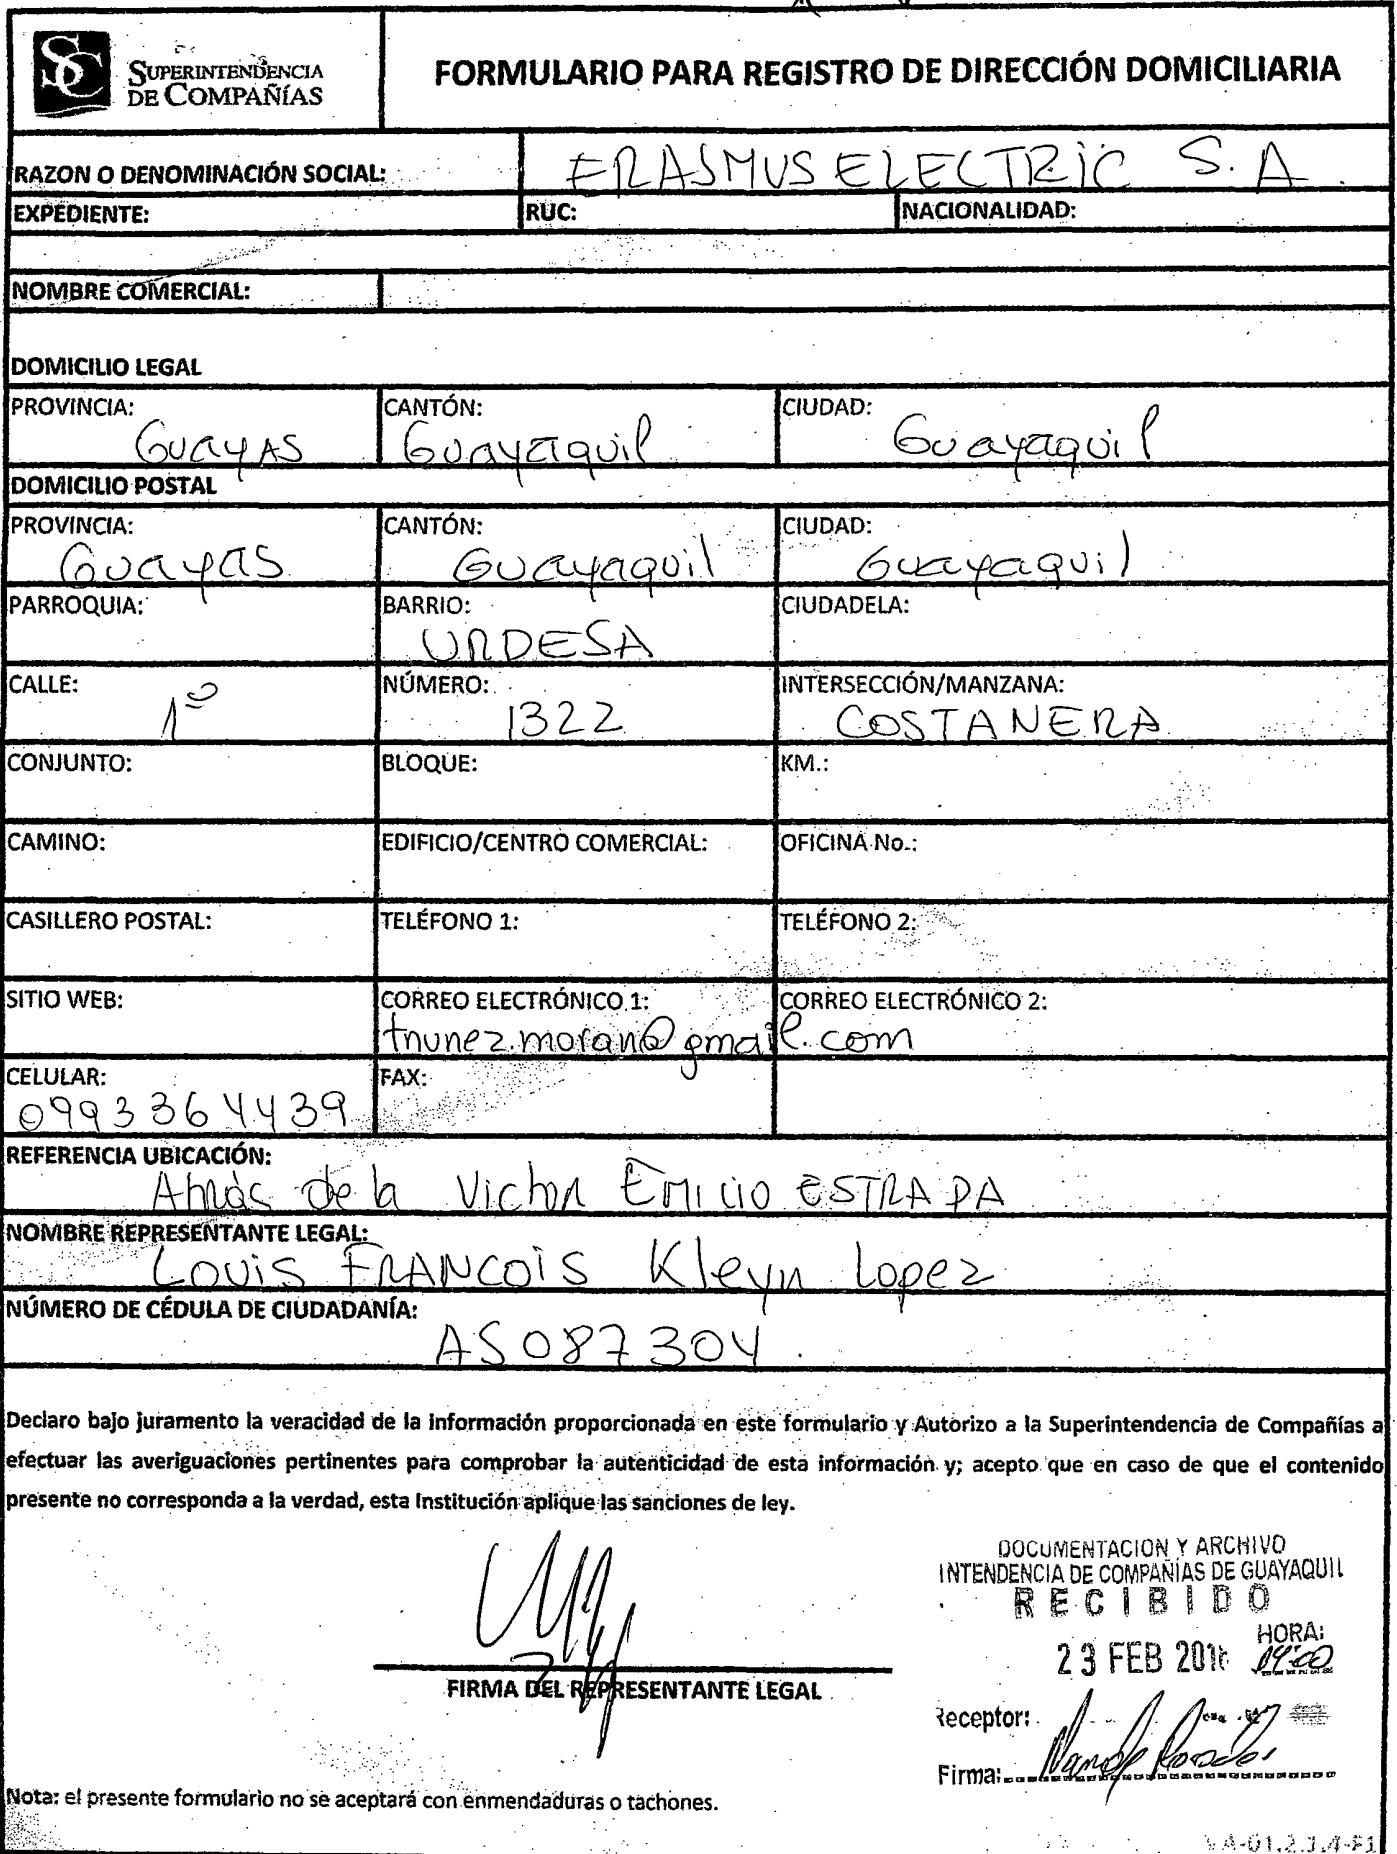 SUPERINTENDENCIA
DE COMPAÑÍAS
FORMULARIO PARA REGISTRO DE DIRECCIÓN DOMICILIARIA
RAZON O DENOMINACIÓN SOCIAL: ERASMUS ELECTRIC S.A.
EXPEDIENTE: RUC: NACIONALIDAD:
NOMBRE COMERCIAL:
DOMICILIO LEGAL
PROVINCIA: CANTÓN: CIUDAD:
Guayas Guayaquil Guayaquil
DOMICILIO POSTAL
PROVINCIA: CANTÓN: CIUDAD:
Guayas Guayaquil Guayaquil
PARROQUIA: BARRIO: CIUDADELA:
URDESA
CALLE: NÚMERO: INTERSECCIÓN/MANZANA:
1º 1322 COSTANERA
CONJUNTO: BLOQUE: KM.:
CAMINO: EDIFICIO/CENTRO COMERCIAL: OFICINA No.:
CASILLERO POSTAL: TELÉFONO 1: TELÉFONO 2:
SITIO WEB: CORREO ELECTRÓNICO 1: CORREO ELECTRÓNICO 2:
tnunez.moran@gmail.com
CELULAR: FAX:
0993364439
REFERENCIA UBICACIÓN:
Atrás de la Victor Emilio ESTRADA
NOMBRE REPRESENTANTE LEGAL:
Louis FRANCOIS Kleyn Lopez
NÚMERO DE CÉDULA DE CIUDADANÍA:
AS087304
Declaro bajo juramento la veracidad de la información proporcionada en este formulario y Autorizo a la Superintendencia de Compañías a
efectuar las averiguaciones pertinentes para comprobar la autenticidad de esta información y; acepto que en caso de que el contenido
presente no corresponda a la verdad, esta Institución aplique las sanciones de ley.
DOCUMENTACION Y ARCHIVO
INTENDENCIA DE COMPAÑIAS DE GUAYAQUIL
RECIBIDO
HORA:
23 FEB
FIRMA DEL REPRESENTANTE LEGAL
Receptor:
Firma:
Nota: el presente formulario no se aceptará con enmendaduras o tachones.